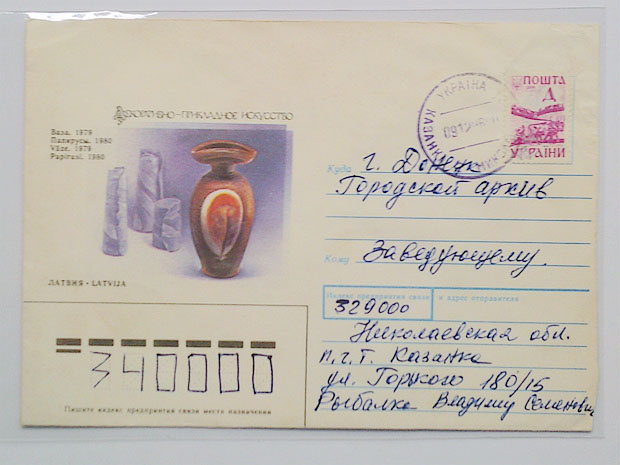 Декоративно-прикладное искусство
Ваза, 1979
Папирусы, 1980
Vāze, 1979
Papirusi, 1980
ЛАТВИЯ • LATVIJA
УКРАЇНА
КАЗАНКА
ПОШТА
Д
УКРАЇНИ
Куда г. Донецк
Городской архив
Кому Заведующему.
Индекс предприятия связи и адрес отправителя
329000
Николаевская обл.
п.г.т. Казанка
ул. Горького 180/15
Рыбалка Владимир Семенович
340000
Пишите индекс предприятия связи места назначения